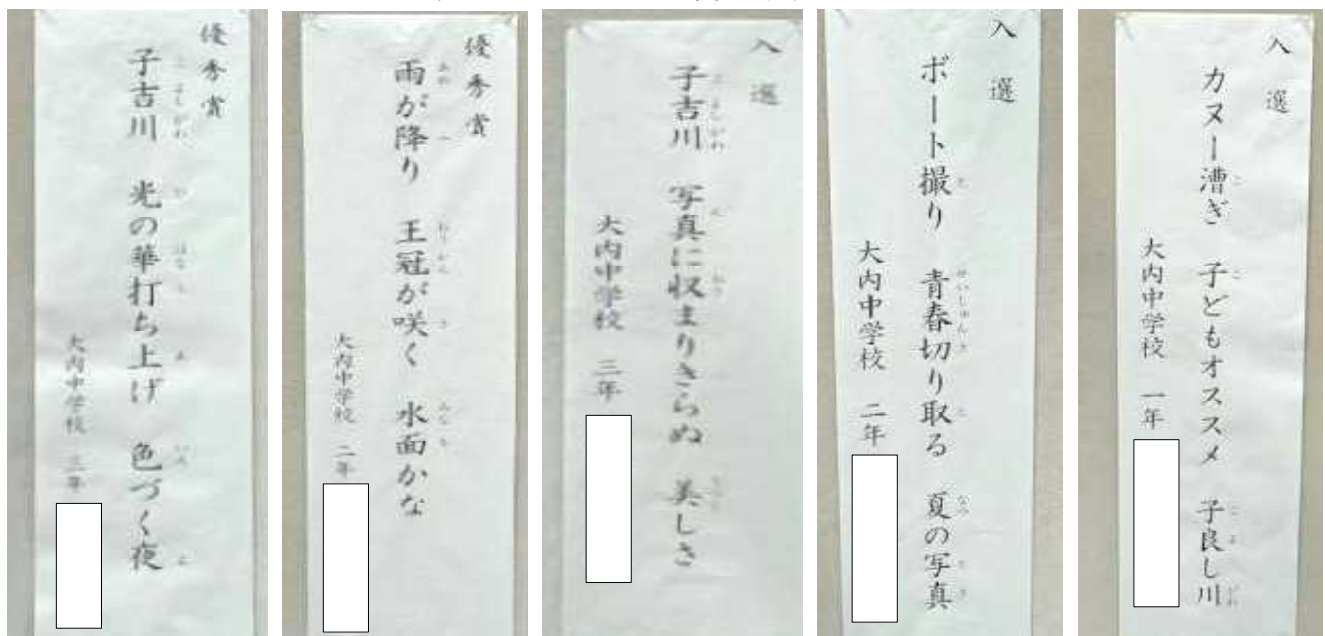 優秀賞
子吉川 光の華打ち上げ 色づく夜
大内中学校 三年
優秀賞
雨が降り 王冠が咲く 水面かな
大内中学校 二年
入選
子吉川 写真に収まりきらぬ 美しさ
大内中学校 三年
入選
ボート撮り 青春切り取る 夏の写真
大内中学校 二年
入選
カヌー漕ぎ 子どもオススメ 子良し川
大内中学校 一年